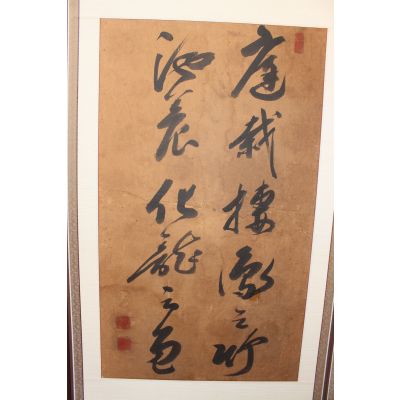 庭栽棲鳳之竹
池養化龍之魚